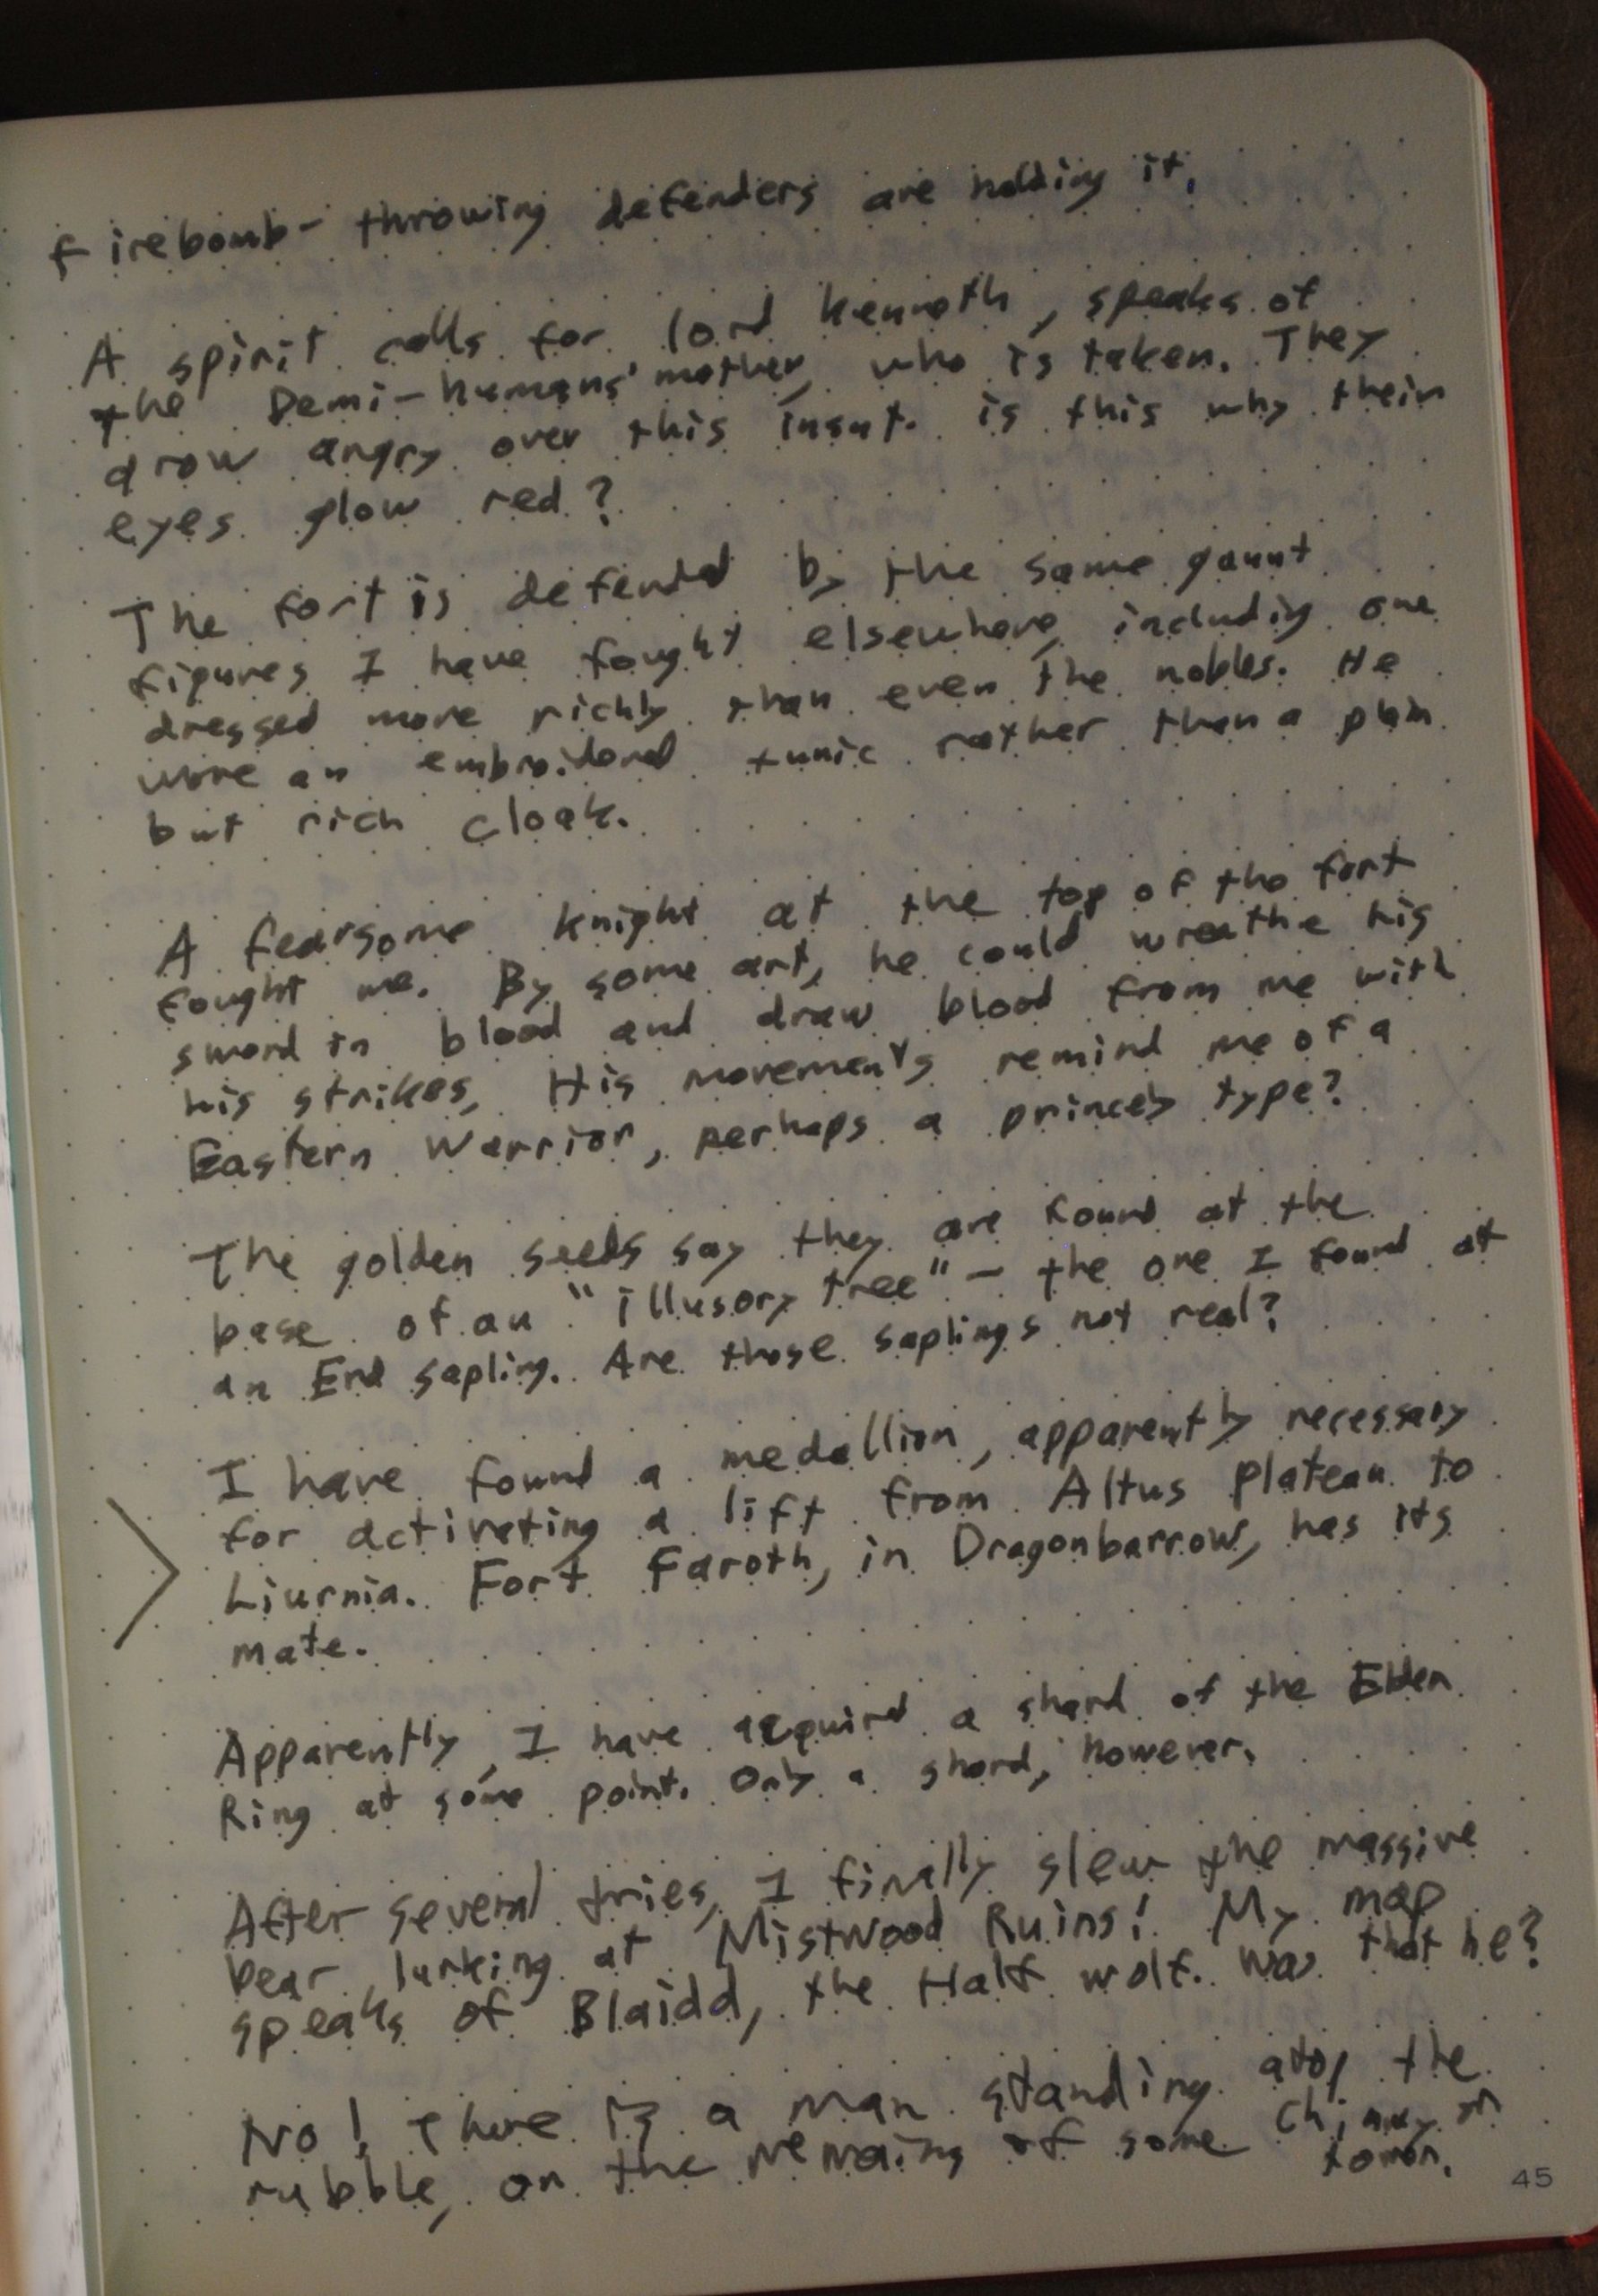 firebomb-throwing defenders are holding it.
A spirit calls for lord kenneth, speaks of
the Demi-humans' mother, who is taken. They
grow angry over this insut. is this why their
eyes glow red?
The fort is defended by the same gaunt
figures I have fought elsewhere, including one
dressed more richly than even the nobles. He
wore an embroidered tunic rather than a plain
but rich cloak.
A fearsome knight at the top of the fort
fought me. By some art, he could wreathe his
sword in blood and draw blood from me with
his strikes. His movements remind me of a
Eastern Warrior, perhaps a princely type?
The golden seeds say they are found at the
base of an "illusory tree" - the one I found at
an Erd sapling. Are those saplings not real?
I have found a medallion, apparently necessary
for activating a lift from Altus plateau to
Liurnia. Fort Faroth, in Dragonbarrow, has its
mate.
Apparently, I have acquired a shard of the Elden
Ring at some point. Only a shard, however.
After several tries, I finally slew the massive
bear lurking at Mistwood Ruins! My map
speaks of Blaidd, the Half wolf. Was that he?
No! there is a man standing atop the
rubble, on the remains of some chimney or
tower.
45